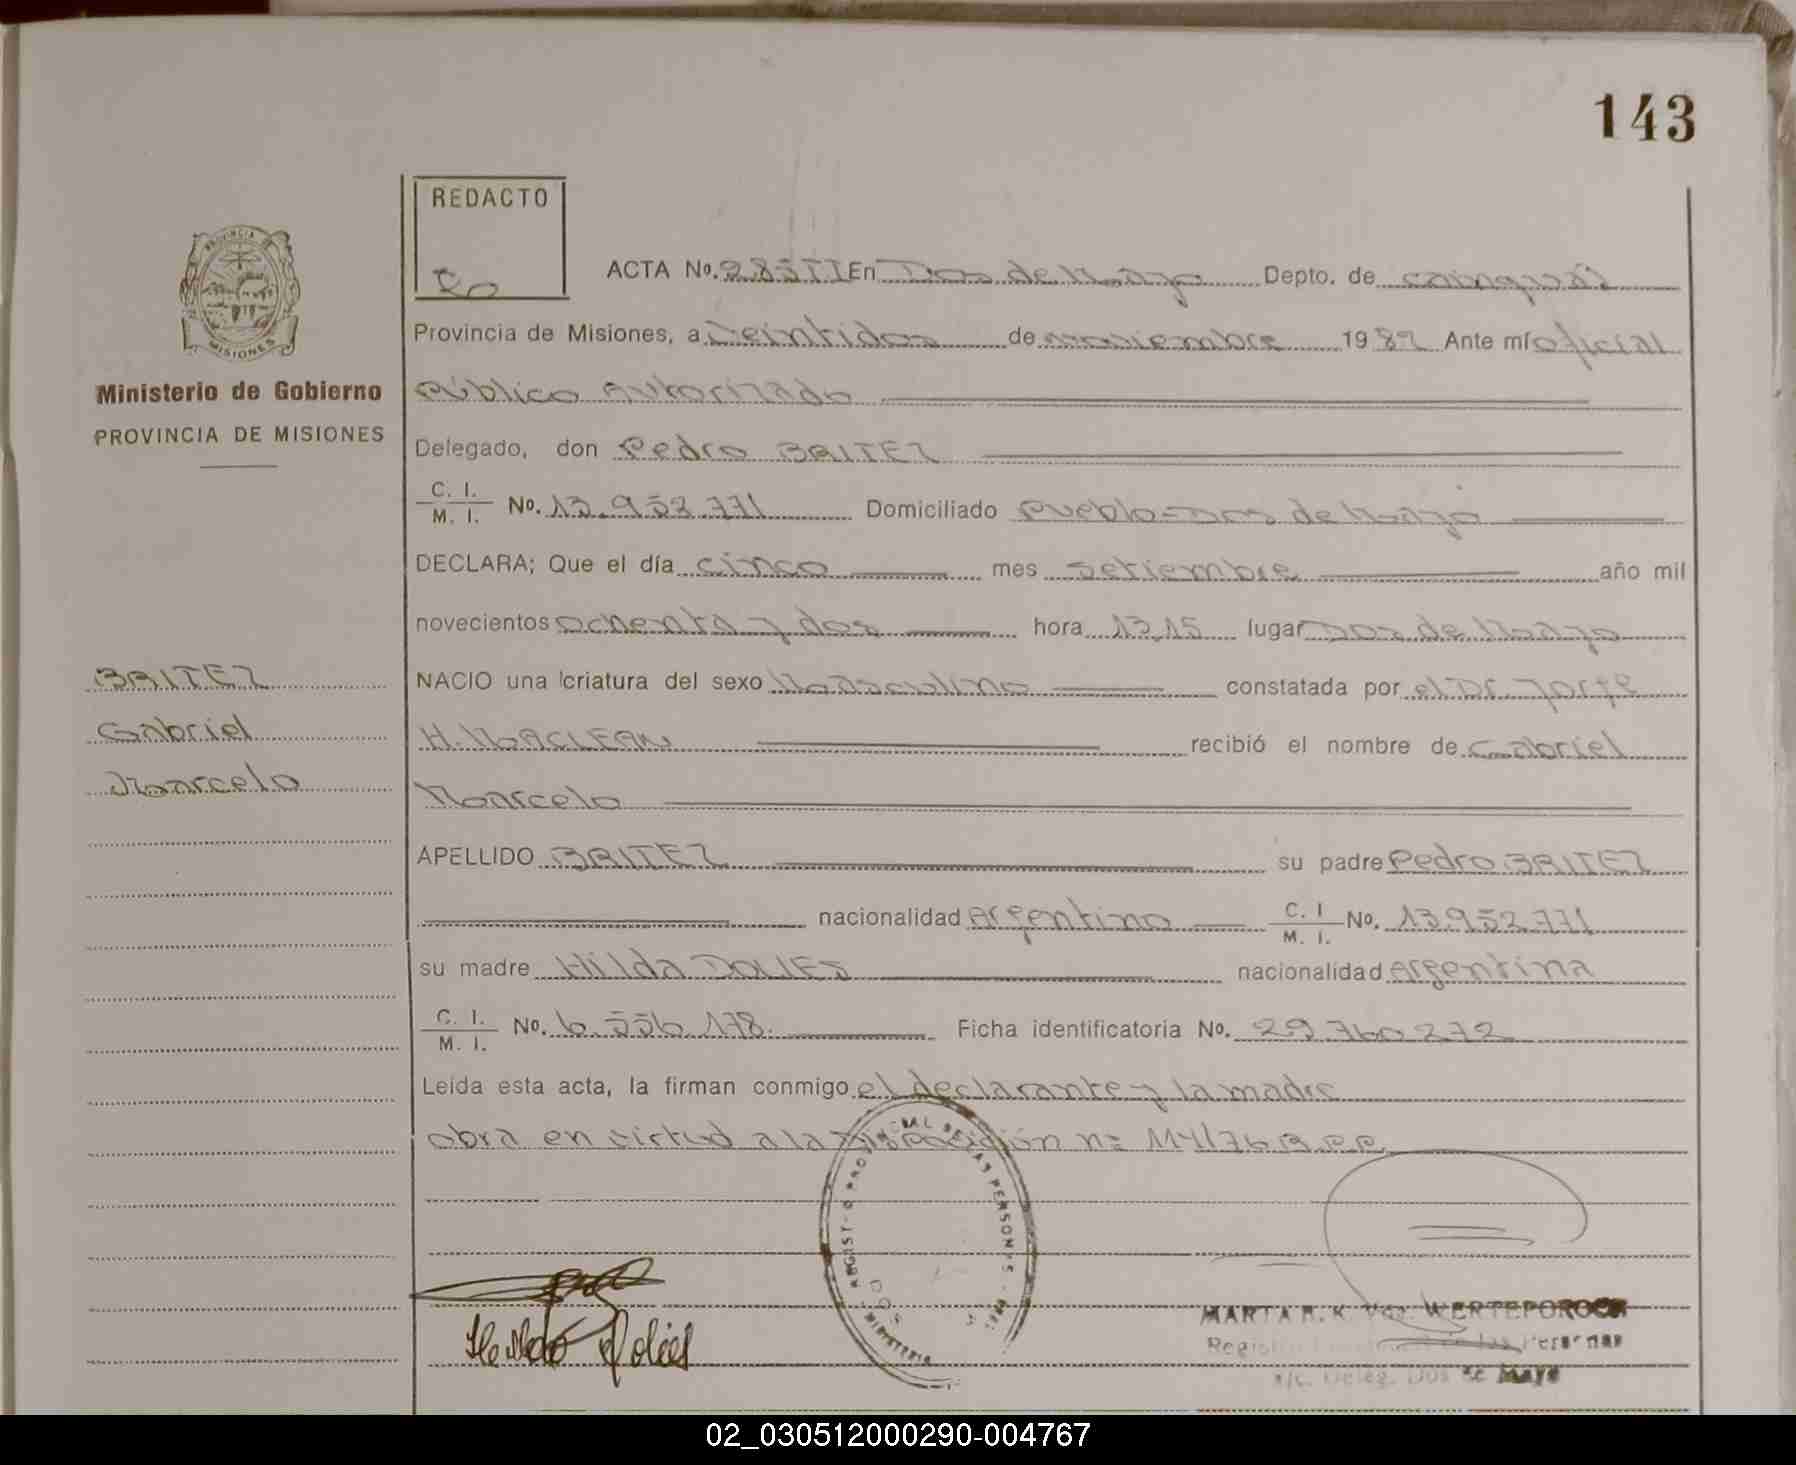 143
REDACTO
PROVINCIA DE
MISIONES
Ministerio de Gobierno
PROVINCIA DE MISIONES
ACTA No. 285 II En Dos de Mayo Depto. de Cainguás
Provincia de Misiones, a Veintidos de noviembre 1982 Ante mí oficial
Público Autorizado
Delegado, don Pedro BRITEZ
C. I.
M. I. No. 13.952.771 Domiciliado Pueblo-Dos de Mayo
DECLARA; Que el día cinco mes setiembre año mil
novecientos ochenta y dos hora 13,15 lugar Dos de Mayo
NACIO una criatura del sexo Masculino constatada por el Dr. Jorge
H. MACLEAN recibió el nombre de Gabriel
Marcelo
APELLIDO BRITEZ su padre Pedro BRITEZ
nacionalidad Argentino C. I. M. I. No. 13.952.771
su madre Hilda DOLIES nacionalidad Argentina
C. I.
M. I. No. 6.556.178. Ficha identificatoria No. 29.760.272
Leída esta acta, la firman conmigo el declarante y la madre
obra en virtud a la Disposición nº 114/76 R.P.P.
BRITEZ
Gabriel
Marcelo
REGISTRO PROVINCIAL DE LAS PERSONAS
MINISTERIO
MARTA R. K. Vda. WERTEPOROCH
Personas
a/c. Deleg. Dos de Mayo
02_030512000290-004767